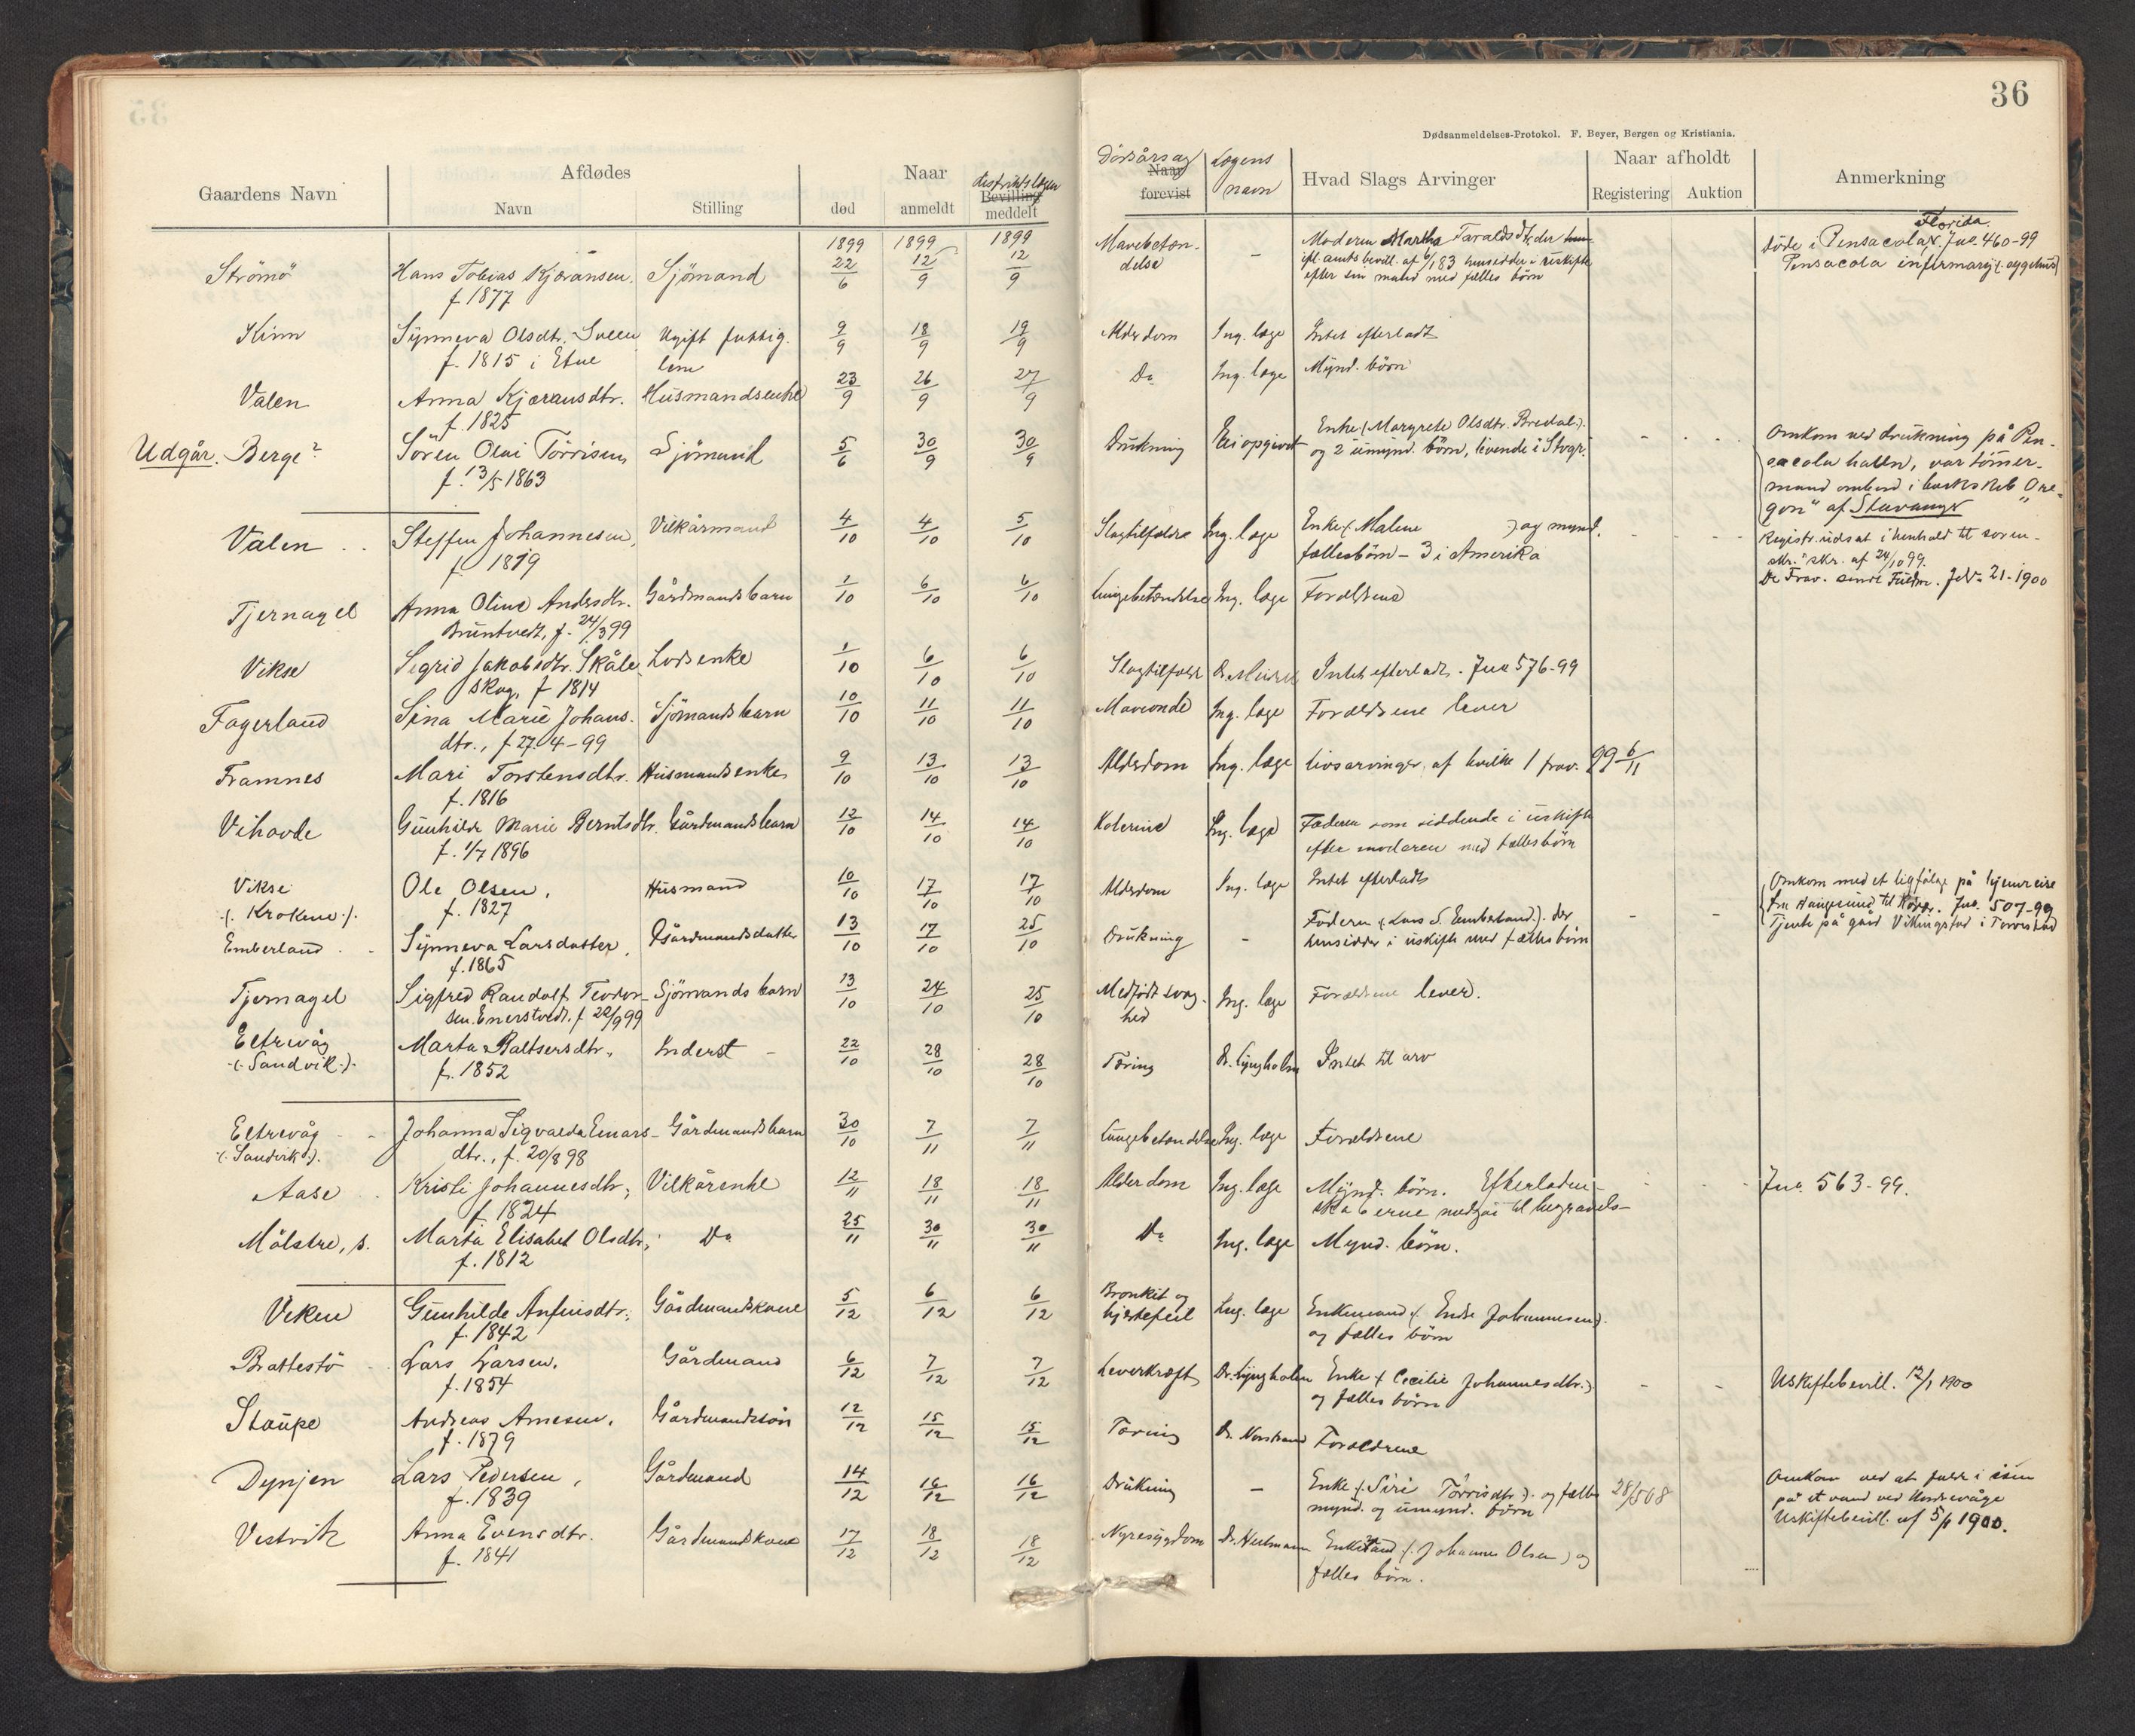 36
Dødsanmeldelses-Protokol. F. Beyer, Bergen og Kristiania.
Gaardens Navn Afdødes Navn Stilling Naar død anmeldt distriktslægen Bevilling meddelt Dödsårsag Naar forevist Lægens navn Hvad Slags Arvinger Naar afholdt Registering Auktion Anmerkning
1899 1899 1899
Strömö Hans Tobias Kjøransen. Sjömand 22/6 12/9 12/9 Mavebetæn- - Moderen Martha Taraldsdtr., der Döde i Pensacola, Florida. Jno. 460-99
f. 1877 delse ifl. amts bevill. af 6/1 83 hensidder i uskifte Pensacola infirmary (: sygehus)
efter sin mand med fælles börn
Kinn Synneva Olsdtr. Ugift fattig- 9/9 18/9 19/9 Alderdom Ing. læge Intet efterladt
f. 1815 i Etne lem
Valen Anna Kjøransdtr. Husmandsenke 23/9 26/9 27/9 Do Ing. læge Mynd. börn
f. 1825
Udgår. Berge? Sören Olai Törrisen, Sjömand 5/6 30/9 30/9 Drukning Ei opgivet Enke (: Margrete Olsdtr. Bredal :) Omkom ved drukning på Pen-
f. 13/5 1863 og 2 umynd. börn, levende i Stvgr. sacola havn, var tömer-
mand ombord i barkskib "Ore-
gon" af Stavanger
Valen Steffen Johannesen, Vilkårmand 4/10 4/10 5/10 Slagtilfælde Ing. læge Enke (: Malene :) og mynd. Registr. udsat i henhold til soren-
f. 1819 fællesbörn - 3 i Amerika skr.s skr. af 24/10 99.
Jno. 21-1900
Tjernagel Anna Oline Andersdtr. Gårdmandsbarn 1/10 6/10 6/10 Lungebetændelse Ing. læge Forældrene
f. 24/3 99
Vikse Sigrid Jakobsdtr. Skåle- Lodsenke 1/10 6/10 6/10 Slagtilfælde Intet efterladt. Jno 576-99
skog, f 1814
Fagerland Sina Marie Johans- Sjömandsbarn 10/10 11/10 11/10 Maveonde Ing. læge Forældrene lever
dtr., f 27.4-99
Framnes Mari Torstensdtr. Husmandsenke 9/10 13/10 13/10 Alderdom Ing. læge Livsarvinger, af hvilke 1 frav. 99 6/11
f. 1816
Vihovde Gunhilde Marie Berntsdtr. Gårdmandsbarn 12/10 14/10 14/10 Kolerine Ing. læge Faderen som siddende i uskifte
f. 1/7 1896 efter moderen med fællesbörn
Vikse Ole Olsen, Husmand 10/10 17/10 17/10 Alderdom Ing. læge Intet efterladt
(: Krokene :) f. 1827
Emberland Synneva Larsdatter, Gårdmandsdatter 13/10 17/10 25/10 Drukning - Faderen (: Lars S. Emberland :) der Omkom med et ligfölge på hjemreise
f. 1865 hensidder i uskifte med fælles börn fra Haugesund til Jno. 507-99
Tjente på gård Vikingstad i Torvestad
Tjernagel Sigfred Randolf Teodor- Sjömandsbarn 13/10 24/10 25/10 Medfödt svag- Ing. læge Forældrene lever.
sen Enerstvedt, f 22/9 99 hed
Eltrevåg Marta Baltsersdtr. Inderst 22/10 28/10 28/10 Tæring Dr. Lyngholm Intet til arv
(: Sandvik :) f. 1852
Eltrevåg Johanna Sigvalda Einars- Gårdmandsbarn 30/10 7/11 7/11 Lungebetændelse Ing. læge Forældrene
(: Sandvik :) dtr., f. 20/8 98
Aase Kristi Johannesdtr, Vilkårenke 12/11 18/11 18/11 Alderdom Ing. læge Mynd. börn. Efterladen- Jno. 563-99.
f 1824 skaberne medgår til begravels-
Målstre, s. Marta Elisabet Olsdtr, Do 25/11 30/11 30/11 Do Ing. læge Mynd. börn.
f. 1812
Viken Gunhilde Anfinsdtr, Gårdmandskone 5/12 6/12 6/12 Bronkit og Ing. læge Enkemand (: Endre Johannesen :)
f. 1842 hjertefeil og fælles börn
Brattestö Lars Larsen. Gårdmand 6/12 7/12 7/12 Leverkræft Dr. Lyngholm Enke (: Cecilie Johannesdtr. :) Uskiftebevill. 12/1 1900
f. 1854 og fælles börn
Staupe Andreas Arnesen, Gårdmandssön 12/12 15/12 15/12 Tæring Forældrene
f. 1879
Dynjen Lars Pedersen, Gårdmand 14/12 16/12 16/12 Drukning - Enke (: Siri Törrisdtr. :) og fælles 28/5 08 Omkom ved at falde i isen
f. 1839 mynd. og umynd. börn på et vand ved
Uskiftebevill. af 5/1 1900.
Vestvik Anna Evensdtr. Gårdmandskone 17/12 18/12 18/12 Nyresygdom Enkemand (: Johannes Olsen :) og
f. 1841 fælles börn.